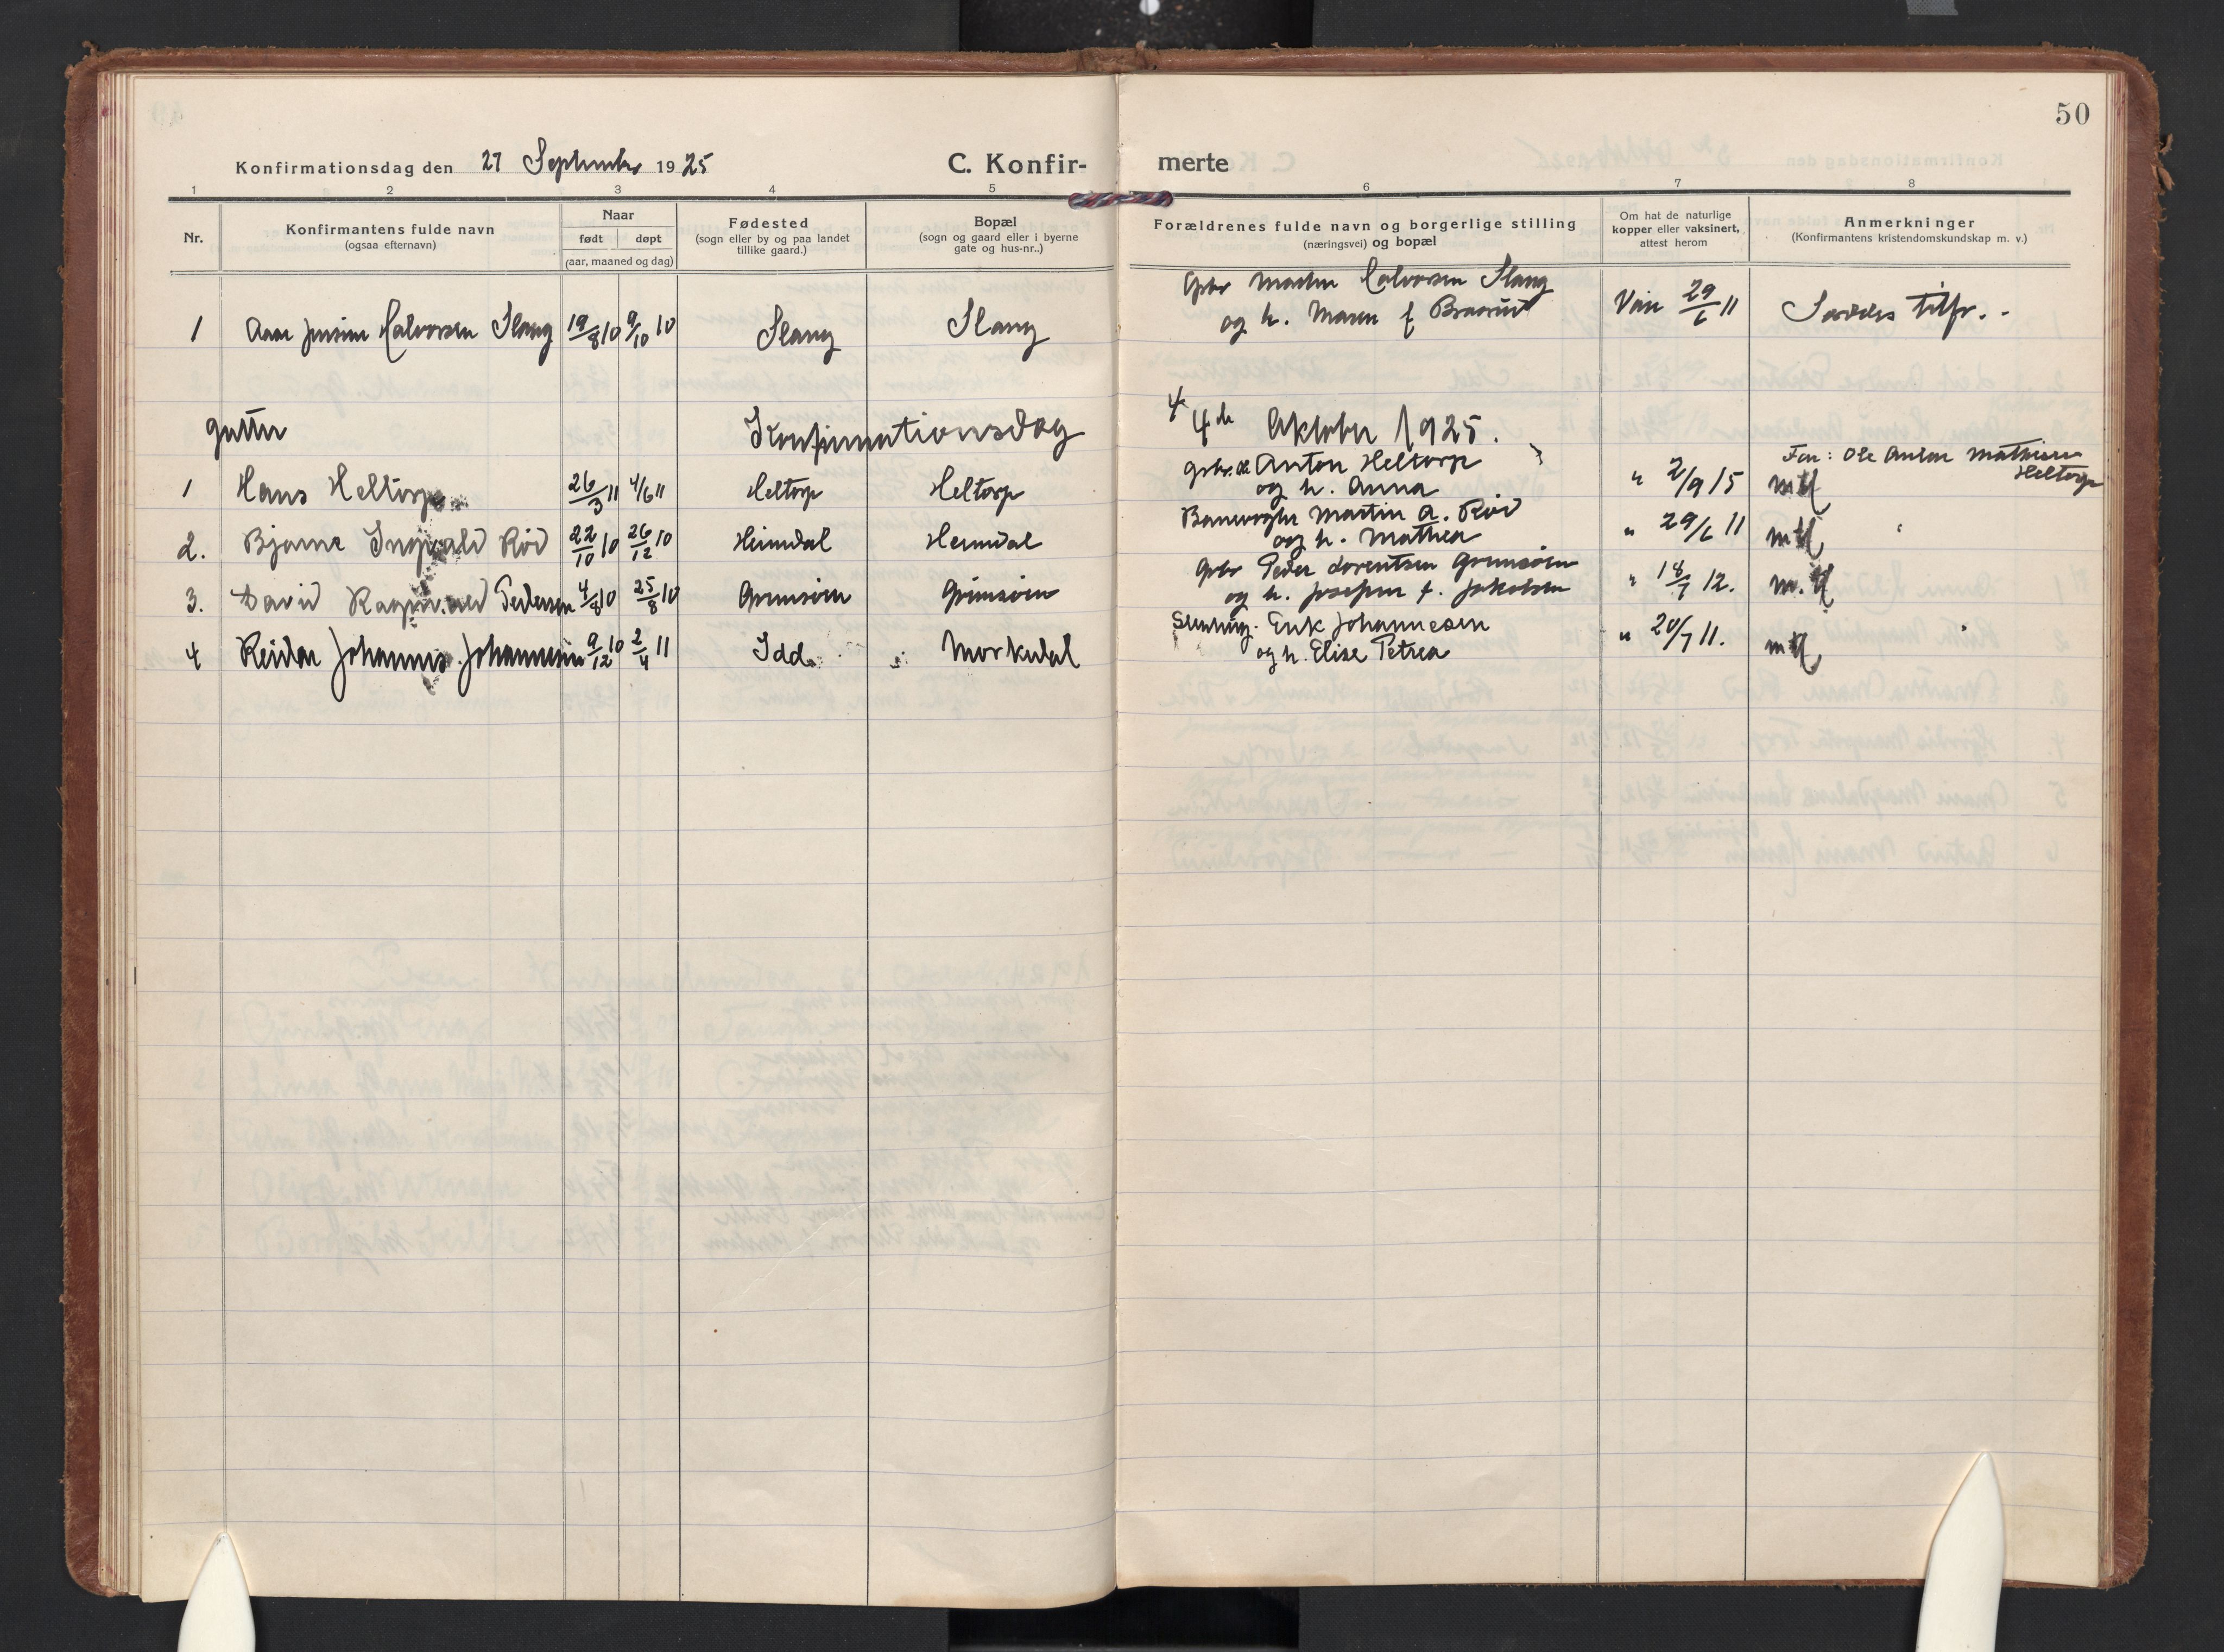 50
Konfirmationsdag den 27 September 1925 C. Konfirmerte
1 2 3 4 5 6 7 8
Nr.
Konfirmantens fulde navn
(ogsaa efternavn)
Naar
født døpt
(aar, maaned og dag)
Fødested
(sogn eller by og paa landet
tillike gaard.)
Bopæl
(sogn og gaard eller i byerne
gate og hus-nr..)
Forældrenes fulde navn og borgerlige stilling
(næringsvei) og bopæl
Om hat de naturlige
kopper eller vaksinert,
attest herom
Anmerkninger
(Konfirmantens kristendomskundskap m. v.)
1 Halvorsen Slang 19/8 10 9/10 10 Slang Slang
Gbr Martin Halvorsen Slang
og h. Maren f
29/6 11
tilfr.
gutter Konfirmationsdag 4de Oktober 1925.
1 Hans Heltorp 26/3 11 4/6 11 Heltorp Heltorp
Anton Heltorp
og h. Anna
" 2/9 15 mtf
Far: Ole Anton Mathisen
Heltorp
2. Bjarne Ingvald Rød 22/10 10 26/12 10 Heimdal Heimdal
Banevogter Martin A. Rød
og h. Mathea
" 29/6 11 mtf
3. David Ragnvald Pedersen 4/8 10 25/8 10 Grimsøen Grimsøen
Gbr Peder Lorentsen Grimsøen
og h. Josefine f. Jakobsen
" 18/7 12. m.tf
4 Reidar Johannes Johannesen 9/12 10 2/4 11 Idd Morkedal
Stenhug. Erik Johannesen
og h. Elise Petrea
" 20/7 11. mtf